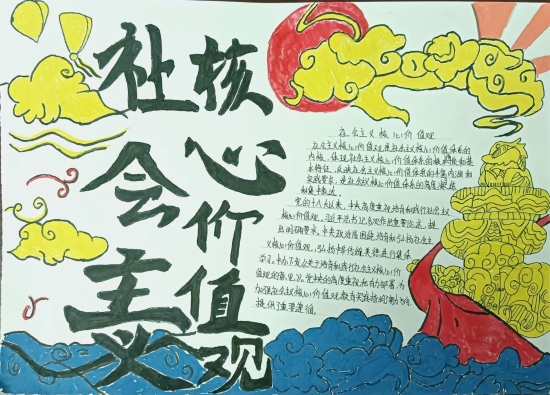 社会主义
核心价值观
社会主义核心价值观
社会主义核心价值观是社会主义核心价值体系的
内核，体现社会主义核心价值体系的根本性质和基
本特征，反映社会主义核心价值体系的丰富内涵和
实践要求，是社会主义核心价值体系的高度凝练
和集中表达。
党的十八大以来，中央高度重视培育和践行社会主
义核心价值观。习近平总书记多次作出重要论述、提
出明确要求。中央政治局围绕培育和弘扬社会主
义核心价值观、弘扬中华传统美德进行集体
学习。中办下发《关于培育和践行社会主义核心价
值观的意见》。党中央的高度重视和有力部署，为
加强社会主义核心价值观教育实践指明了努力方向，
提供了重要遵循。